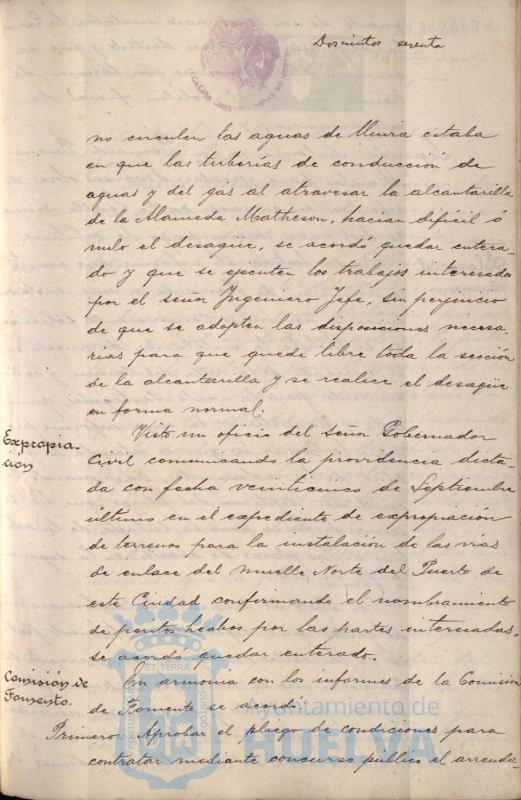 Doscientos sesenta
no circulen las aguas de lluvia estaba
en que las tuberías de conducción de
aguas y del gas al atravesar la alcantarilla
de la Alameda Matheson, hacian difícil ó
nulo el desagüe, se acordó quedar entera-
do y que se ejecuten los trabajos interesados
por el señor Ingeniero Jefe, sin perjuicio
de que se adopten las disposiciones necesa-
rias para que quede libre toda la sección
de la alcantarilla y se realice el desagüe
en forma normal.
Expropia-
ción
Visto un oficio del señor Gobernador
Civil comunicando la providencia dicta-
da con fecha veinticinco de Septiembre
último en el expediente de expropiación
de terrenos para la instalación de las vias
de enlace del muelle Norte del Puerto de
este Ciudad confirmando el nombramiento
de peritos hechos por las partes interesadas,
se acordo quedar enterado.
Comisión de
Fomento.
En armonia con los informes de la Comision
de Fomento se acordó
Primero. Aprobar el pliego de condiciones para
contratar mediante concurso público el arrenda-
ET TERRA
Ayuntamiento de
HUELVA